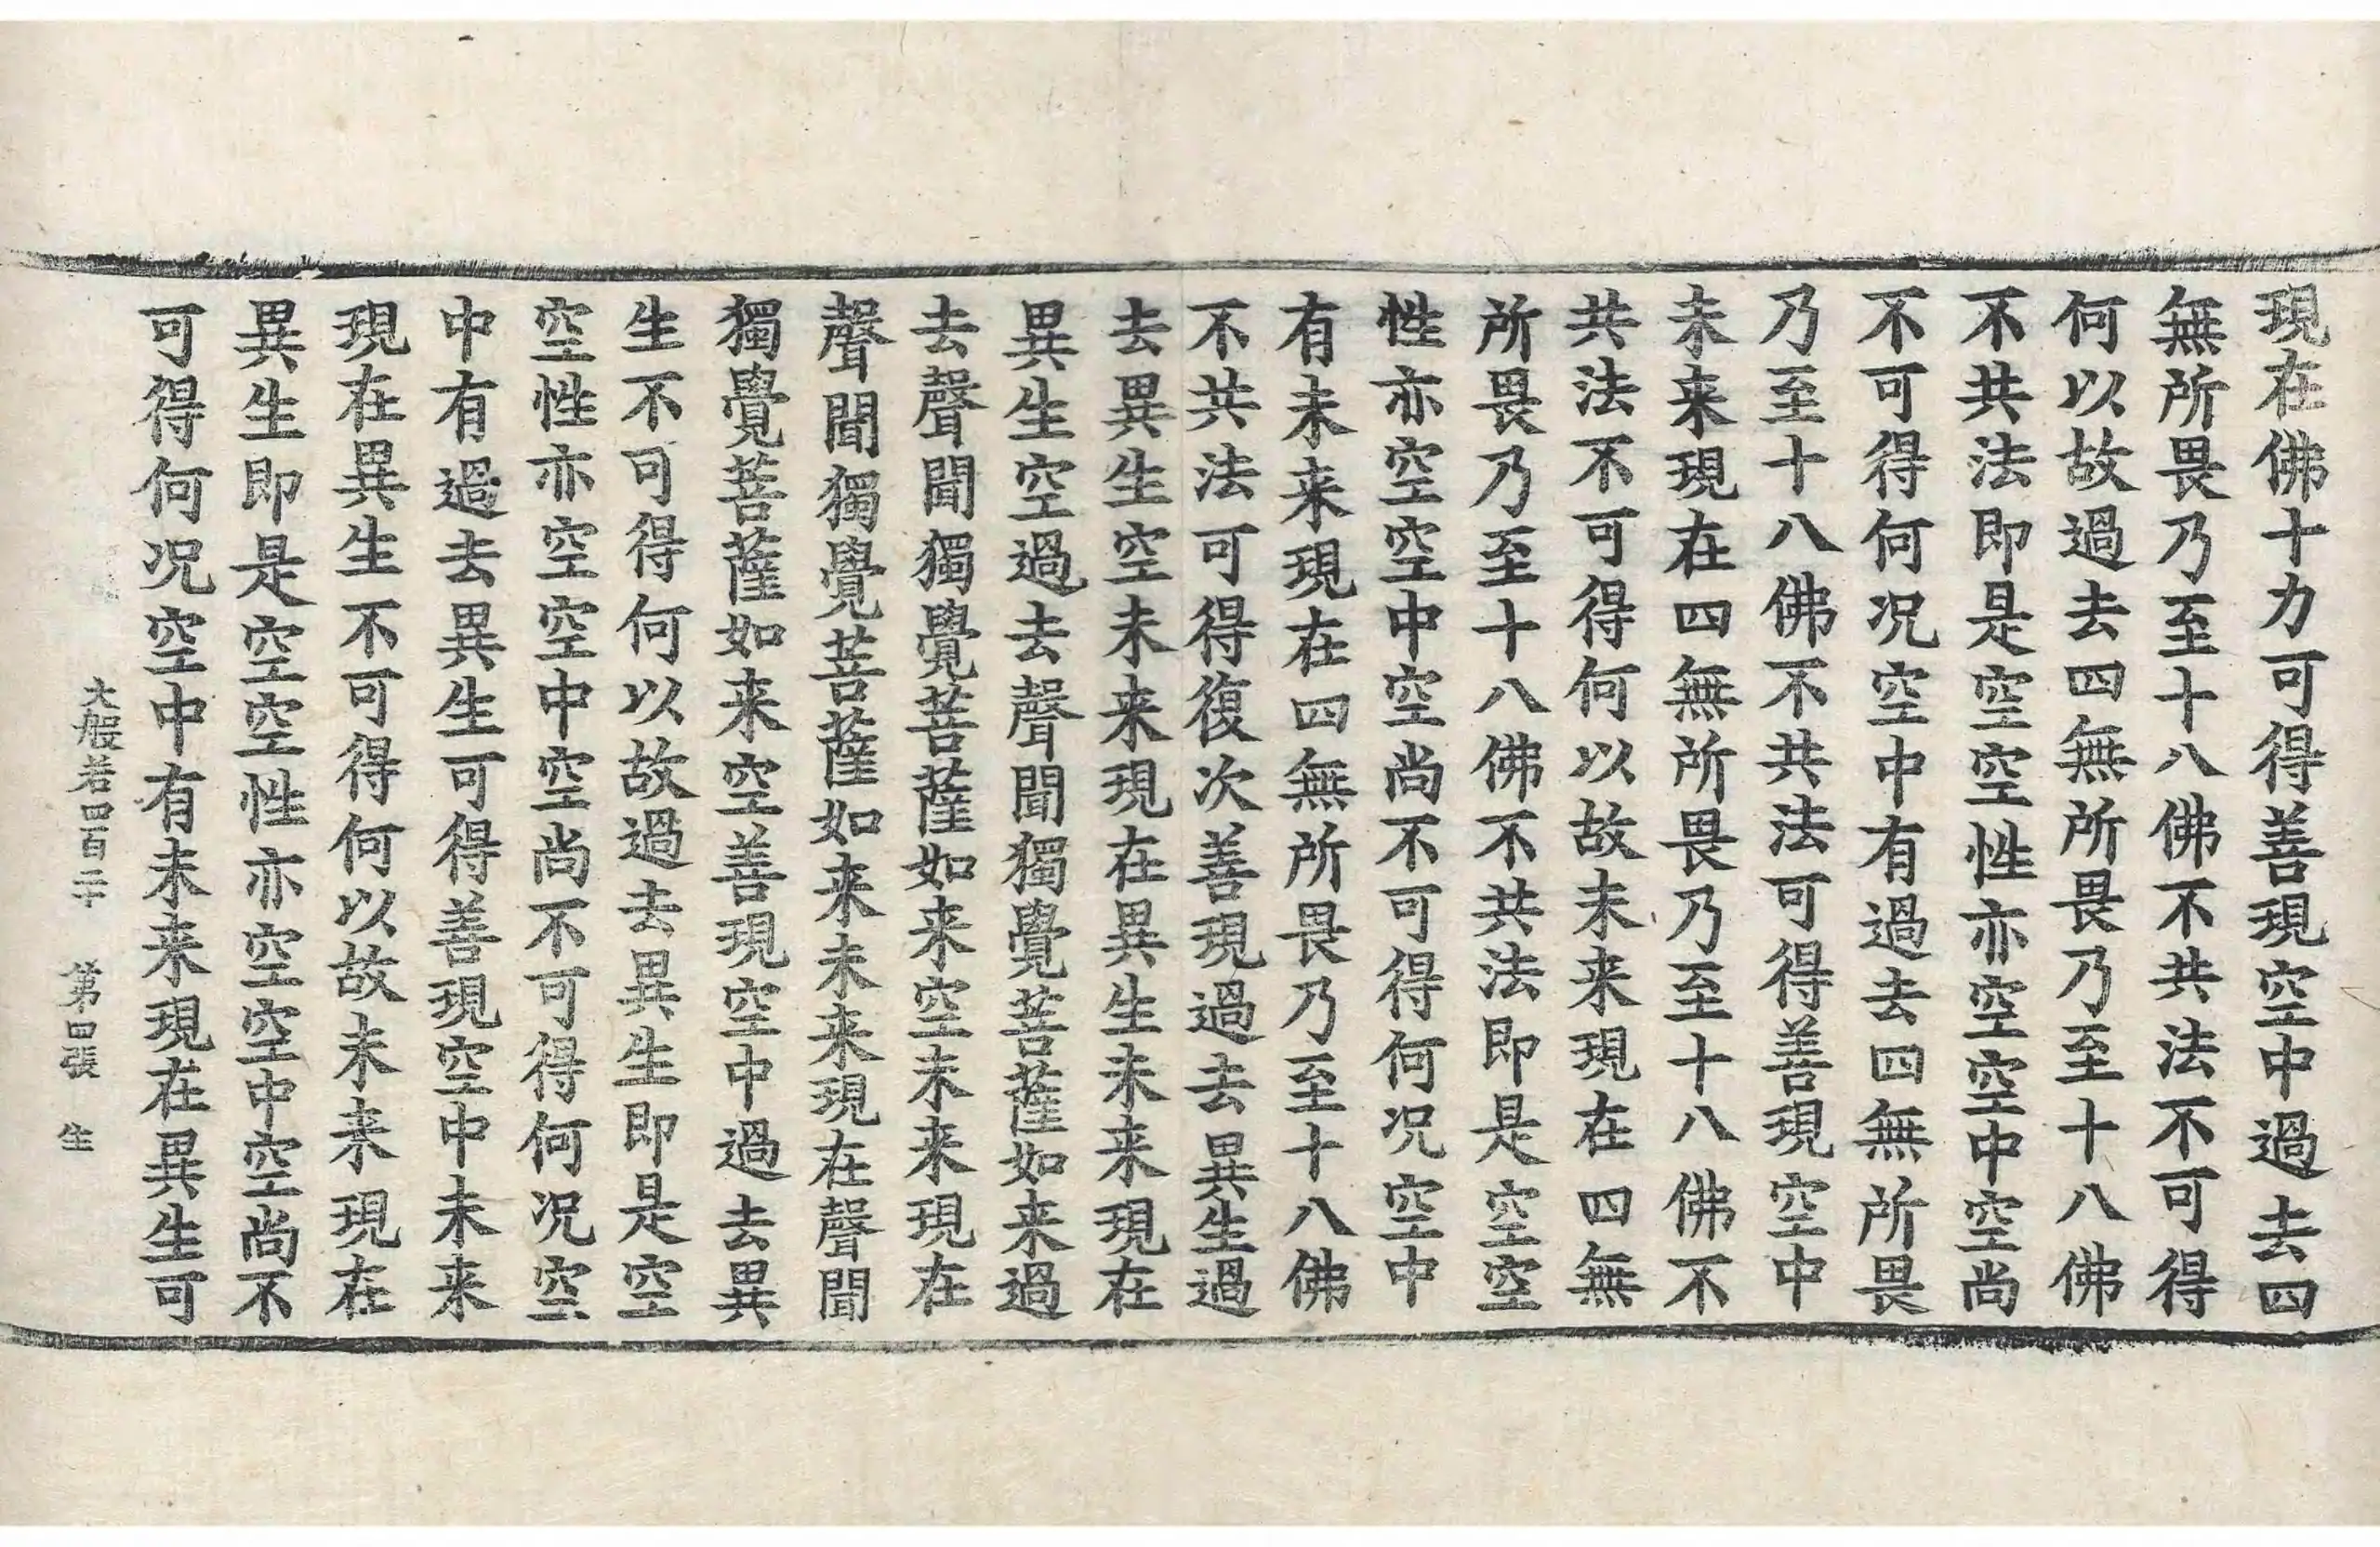 現在佛十力可得善現空中過去四
無所畏乃至十八佛不共法不可得
何以故過去四無所畏乃至十八佛
不共法即是空空性亦空空中空尚
不可得何况空中有過去四無所畏
乃至十八佛不共法可得善現空中
未来現在四無所畏乃至十八佛不
共法不可得何以故未来現在四無
所畏乃至十八佛不共法即是空空
性亦空空中空尚不可得何况空中
有未来現在四無所畏乃至十八佛
不共法可得復次善現過去異生過
去異生空未来現在異生未来現在
異生空過去聲聞獨覺菩薩如来過
去聲聞獨覺菩薩如来空未来現在
聲聞獨覺菩薩如来未来現在聲聞
獨覺菩薩如来空善現空中過去異
生不可得何以故過去異生即是空
空性亦空空中空尚不可得何况空
中有過去異生可得善現空中未来
現在異生不可得何以故未来現在
異生即是空空性亦空空中空尚不
可得何况空中有未来現在異生可
大般若四百二十　第四張　生